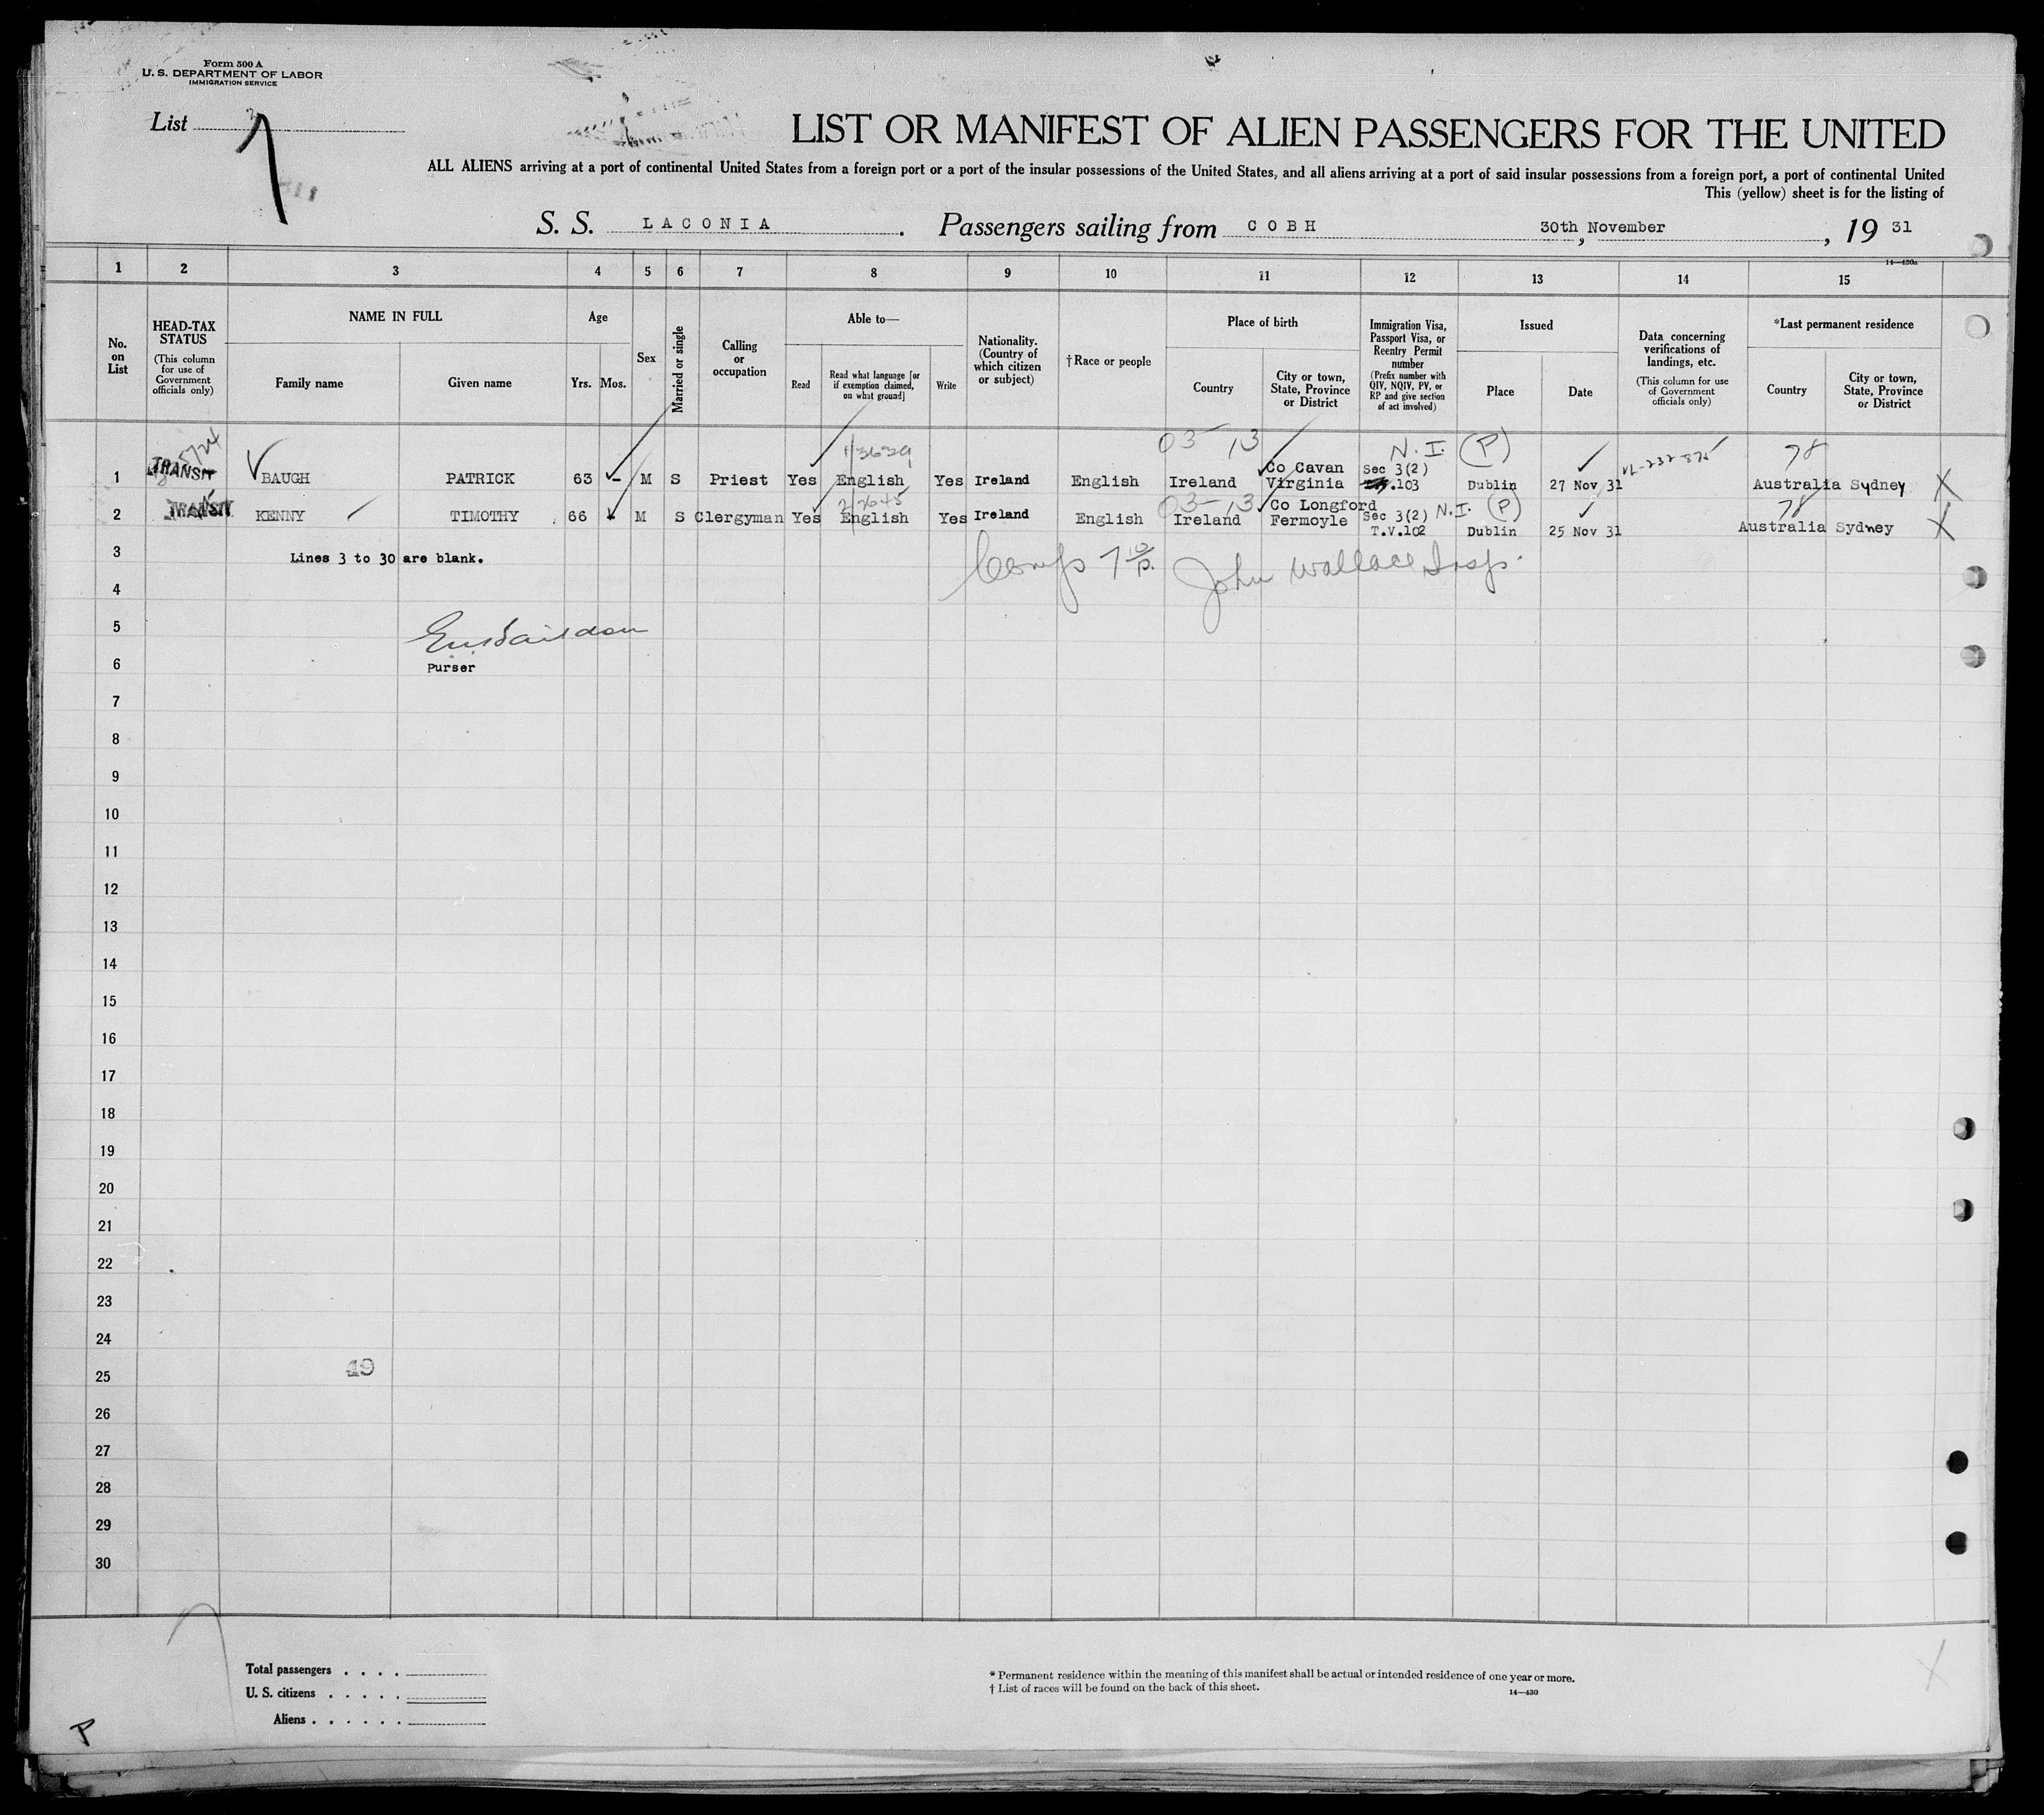 Form 500 A
U. S. DEPARTMENT OF LABOR
IMMIGRATION SERVICE
List 7
LIST OR MANIFEST OF ALIEN PASSENGERS FOR THE UNITED
ALL ALIENS arriving at a port of continental United States from a foreign port or a port of the insular possessions of the United States, and all aliens arriving at a port of said insular possessions from a foreign port, a port of continental United
This (yellow) sheet is for the listing of
S. S. LACONIA. Passengers sailing from COBH 30th, November, 19 31
14—430a
1 2 3 4 5 6 7 8 9 10 11 12 13 14 15
No. on List
HEAD-TAX STATUS (This column for use of Government officials only)
NAME IN FULL
Family name
Given name
Age
Yrs. Mos.
Sex
Married or single
Calling or occupation
Able to—
Read
Read what language [or if exemption claimed, on what ground]
Write
Nationality. (Country of which citizen or subject)
†Race or people
Place of birth
Country
City or town, State, Province or District
Immigration Visa, Passport Visa, or Reentry Permit number (Prefix number with QIV, NQIV, PV, or RP and give section of act involved)
Issued
Place
Date
Data concerning verifications of landings, etc. (This column for use of Government officials only)
*Last permanent residence
Country
City or town, State, Province or District
03 13 N. I. (P) 78
1 TRANSIT BAUGH PATRICK 63 - M S Priest Yes English Yes Ireland English Ireland Co Cavan Virginia Sec 3(2) .103 Dublin 27 Nov 31 Australia Sydney X
03 13 N. I. (P) 78
2 TRANSIT KENNY TIMOTHY 66 - M S Clergyman Yes English Yes Ireland English Ireland Co Longford Fermoyle Sec 3(2) T.V.102 Dublin 25 Nov 31 Australia Sydney X
3 Lines 3 to 30 are blank. John Wallace Insp.
4
5
6 Purser
7
8
9
10
11
12
13
14
15
16
17
18
19
20
21
22
23
24
25 49
26
27
28
29
30
Total passengers . . . .
U. S. citizens . . . . .
Aliens . . . . . .
* Permanent residence within the meaning of this manifest shall be actual or intended residence of one year or more.
† List of races will be found on the back of this sheet.
14—430
P
X